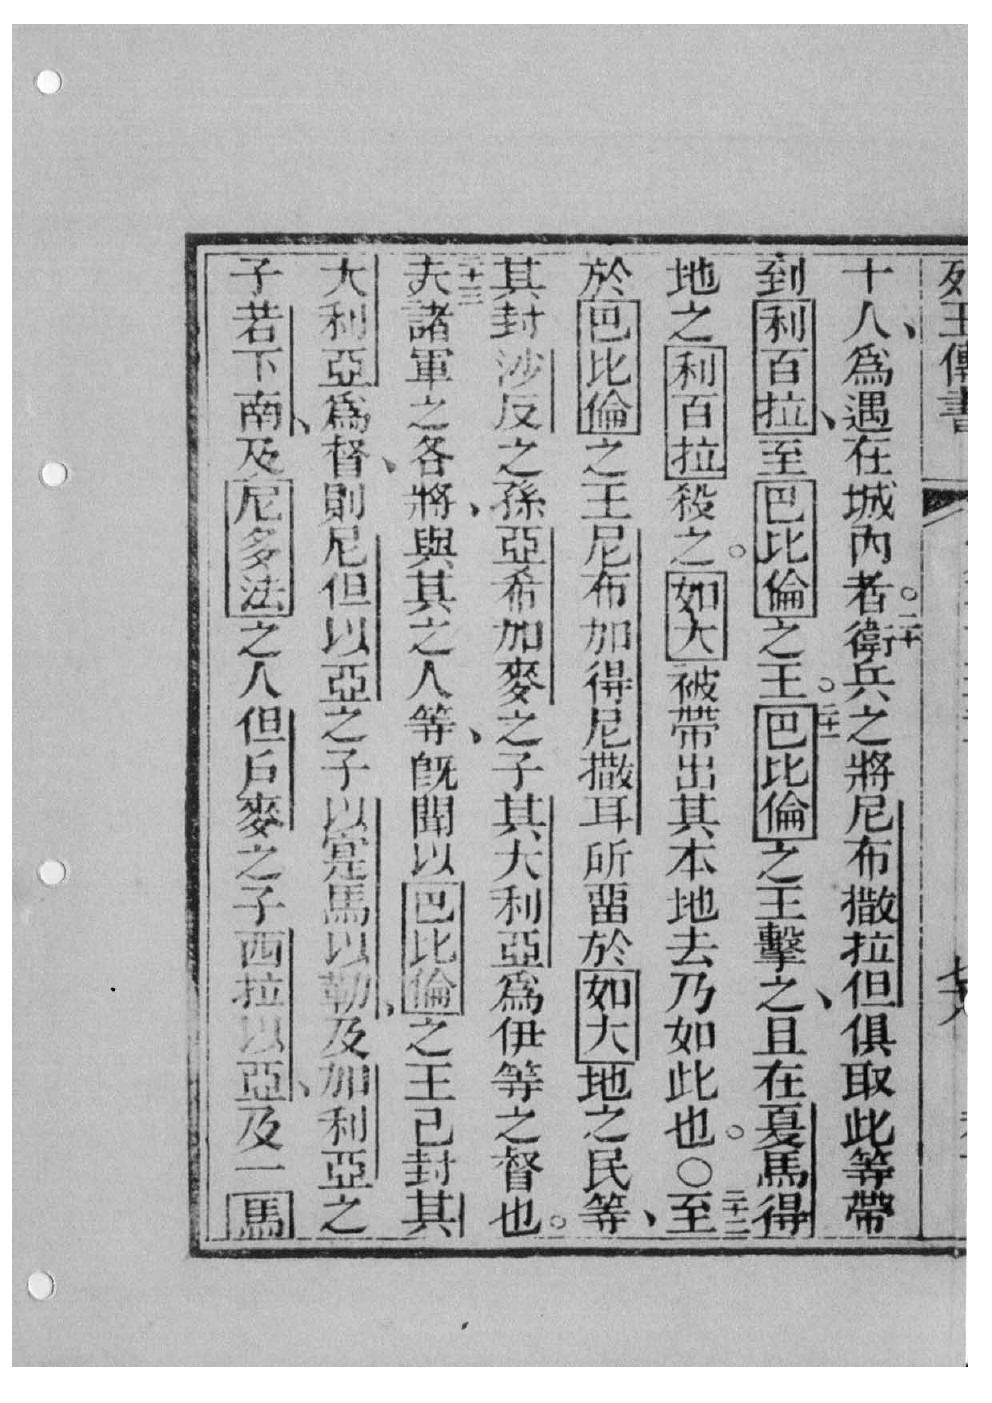 列王傳書
十人、爲遇在城內者。二十衛兵之將尼布撒拉但俱取此等帶
到利百拉、至巴比倫之王。二十一巴比倫之王擊之、且在夏馬得
地之利百拉殺之。如大被帶出其本地去乃如此也。○二十二至
於巴比倫之王尼布加得尼撒耳所畱於如大地之民等、
其封沙反之孫亞希加麥之子其大利亞爲伊等之督也。
二十三夫諸軍之各將、與其之人等、旣聞以巴比倫之王已封其
大利亞爲督、則尼但以亞之子以寔馬以勒、及加利亞之
子若下南、及尼多法之人但戶麥之子西拉以亞、及一馬